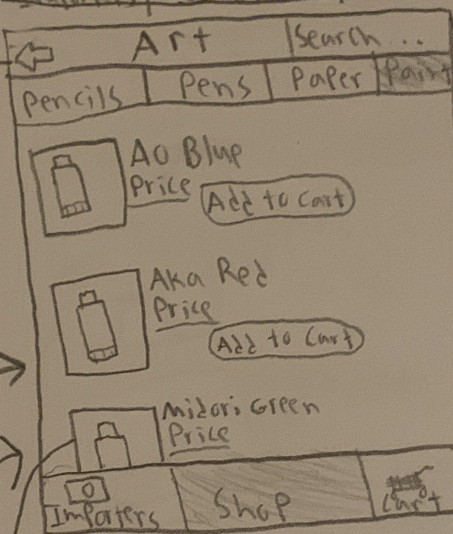 Art
Search...
Pencils
Pens
Paper
Paint
Ao Blue
Price
Add to Cart
Aka Red
Price
Add to Cart
Midori Green
Price
Importers
Shop
Cart